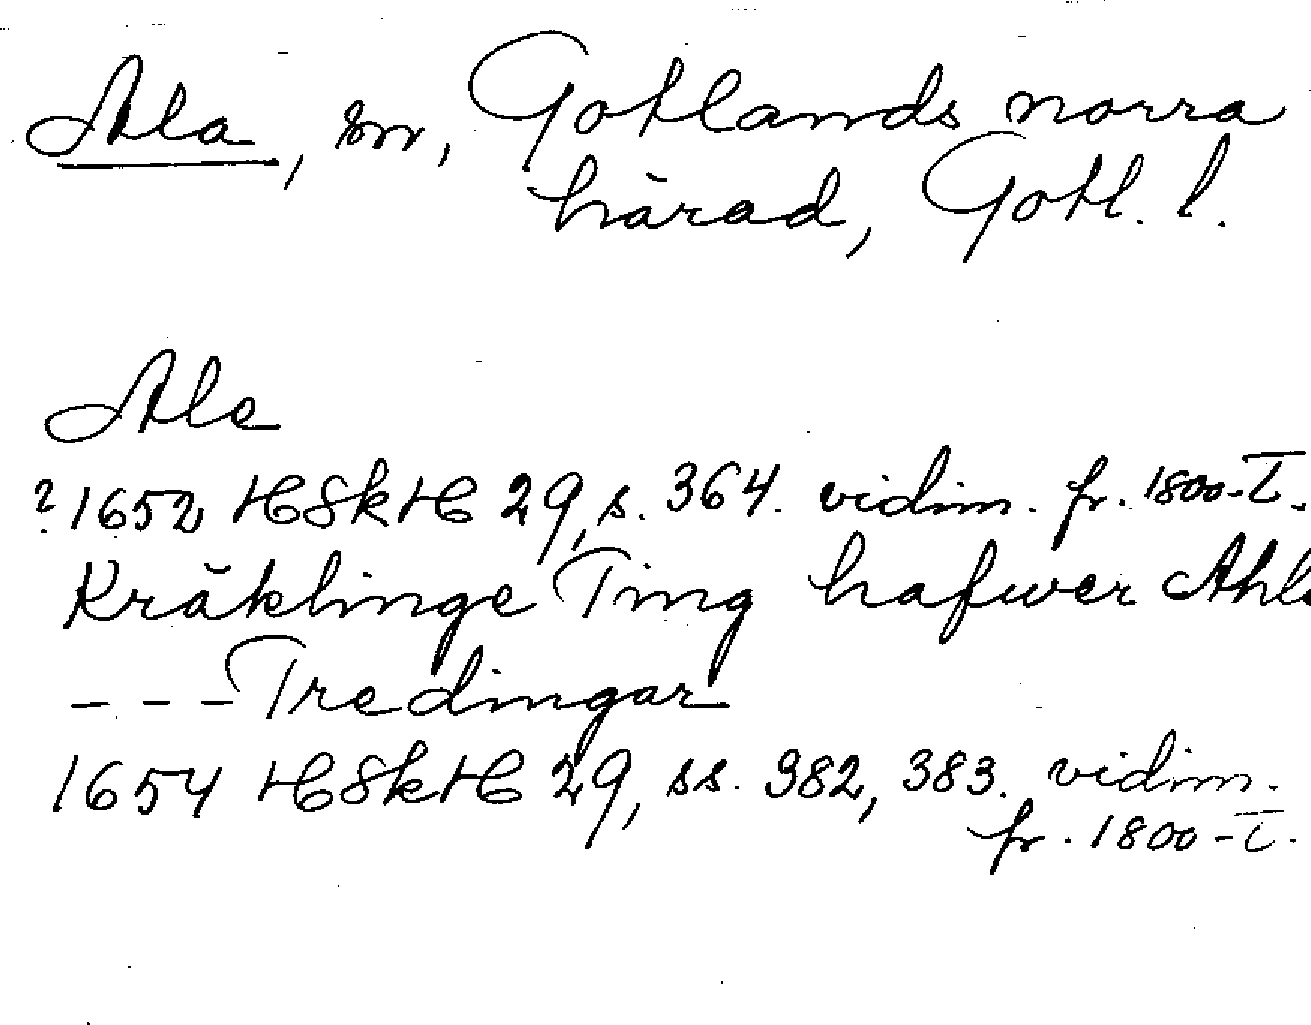 Ala, sn, Gotlands norra
härad, Gotl. l.
Ale
?1652 HSkH 29, s. 364. vidim. fr. 1800-t.
Kräklinge Ting hafwer Ahle
--- Tredingar
1654 HSkH 29, ss. 382, 383. vidim.
fr. 1800-t.